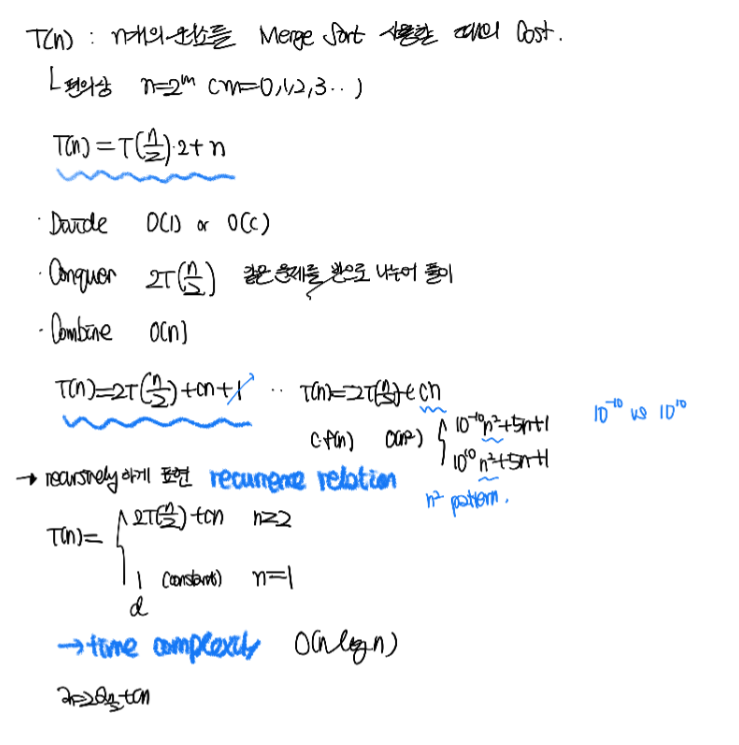 T(n) : n개의 원소를 Merge Sort 사용할 때의 Cost.
편의상 n=2^m (m=0,1,2,3..)
T(n)=T(n/2)·2+n
· Divide O(1) or O(c)
· Conquer 2T(n/2) 같은 문제를 반으로 나누어 풀이
· Combine O(n)
T(n)=2T(n/2)+cn+1 ·· T(n)=2T(n/2)+cn
c·f(n) O(n²) 10^-10 n²+5n+1 10^-10 vs 10^10
10^10 n²+5n+1
→ recursively하게 표현 recurrence relation n² pattern.
T(n)= 2T(n/2)+cn n≥2
1 (constant) n=1
d
→ time complexity O(n log n)